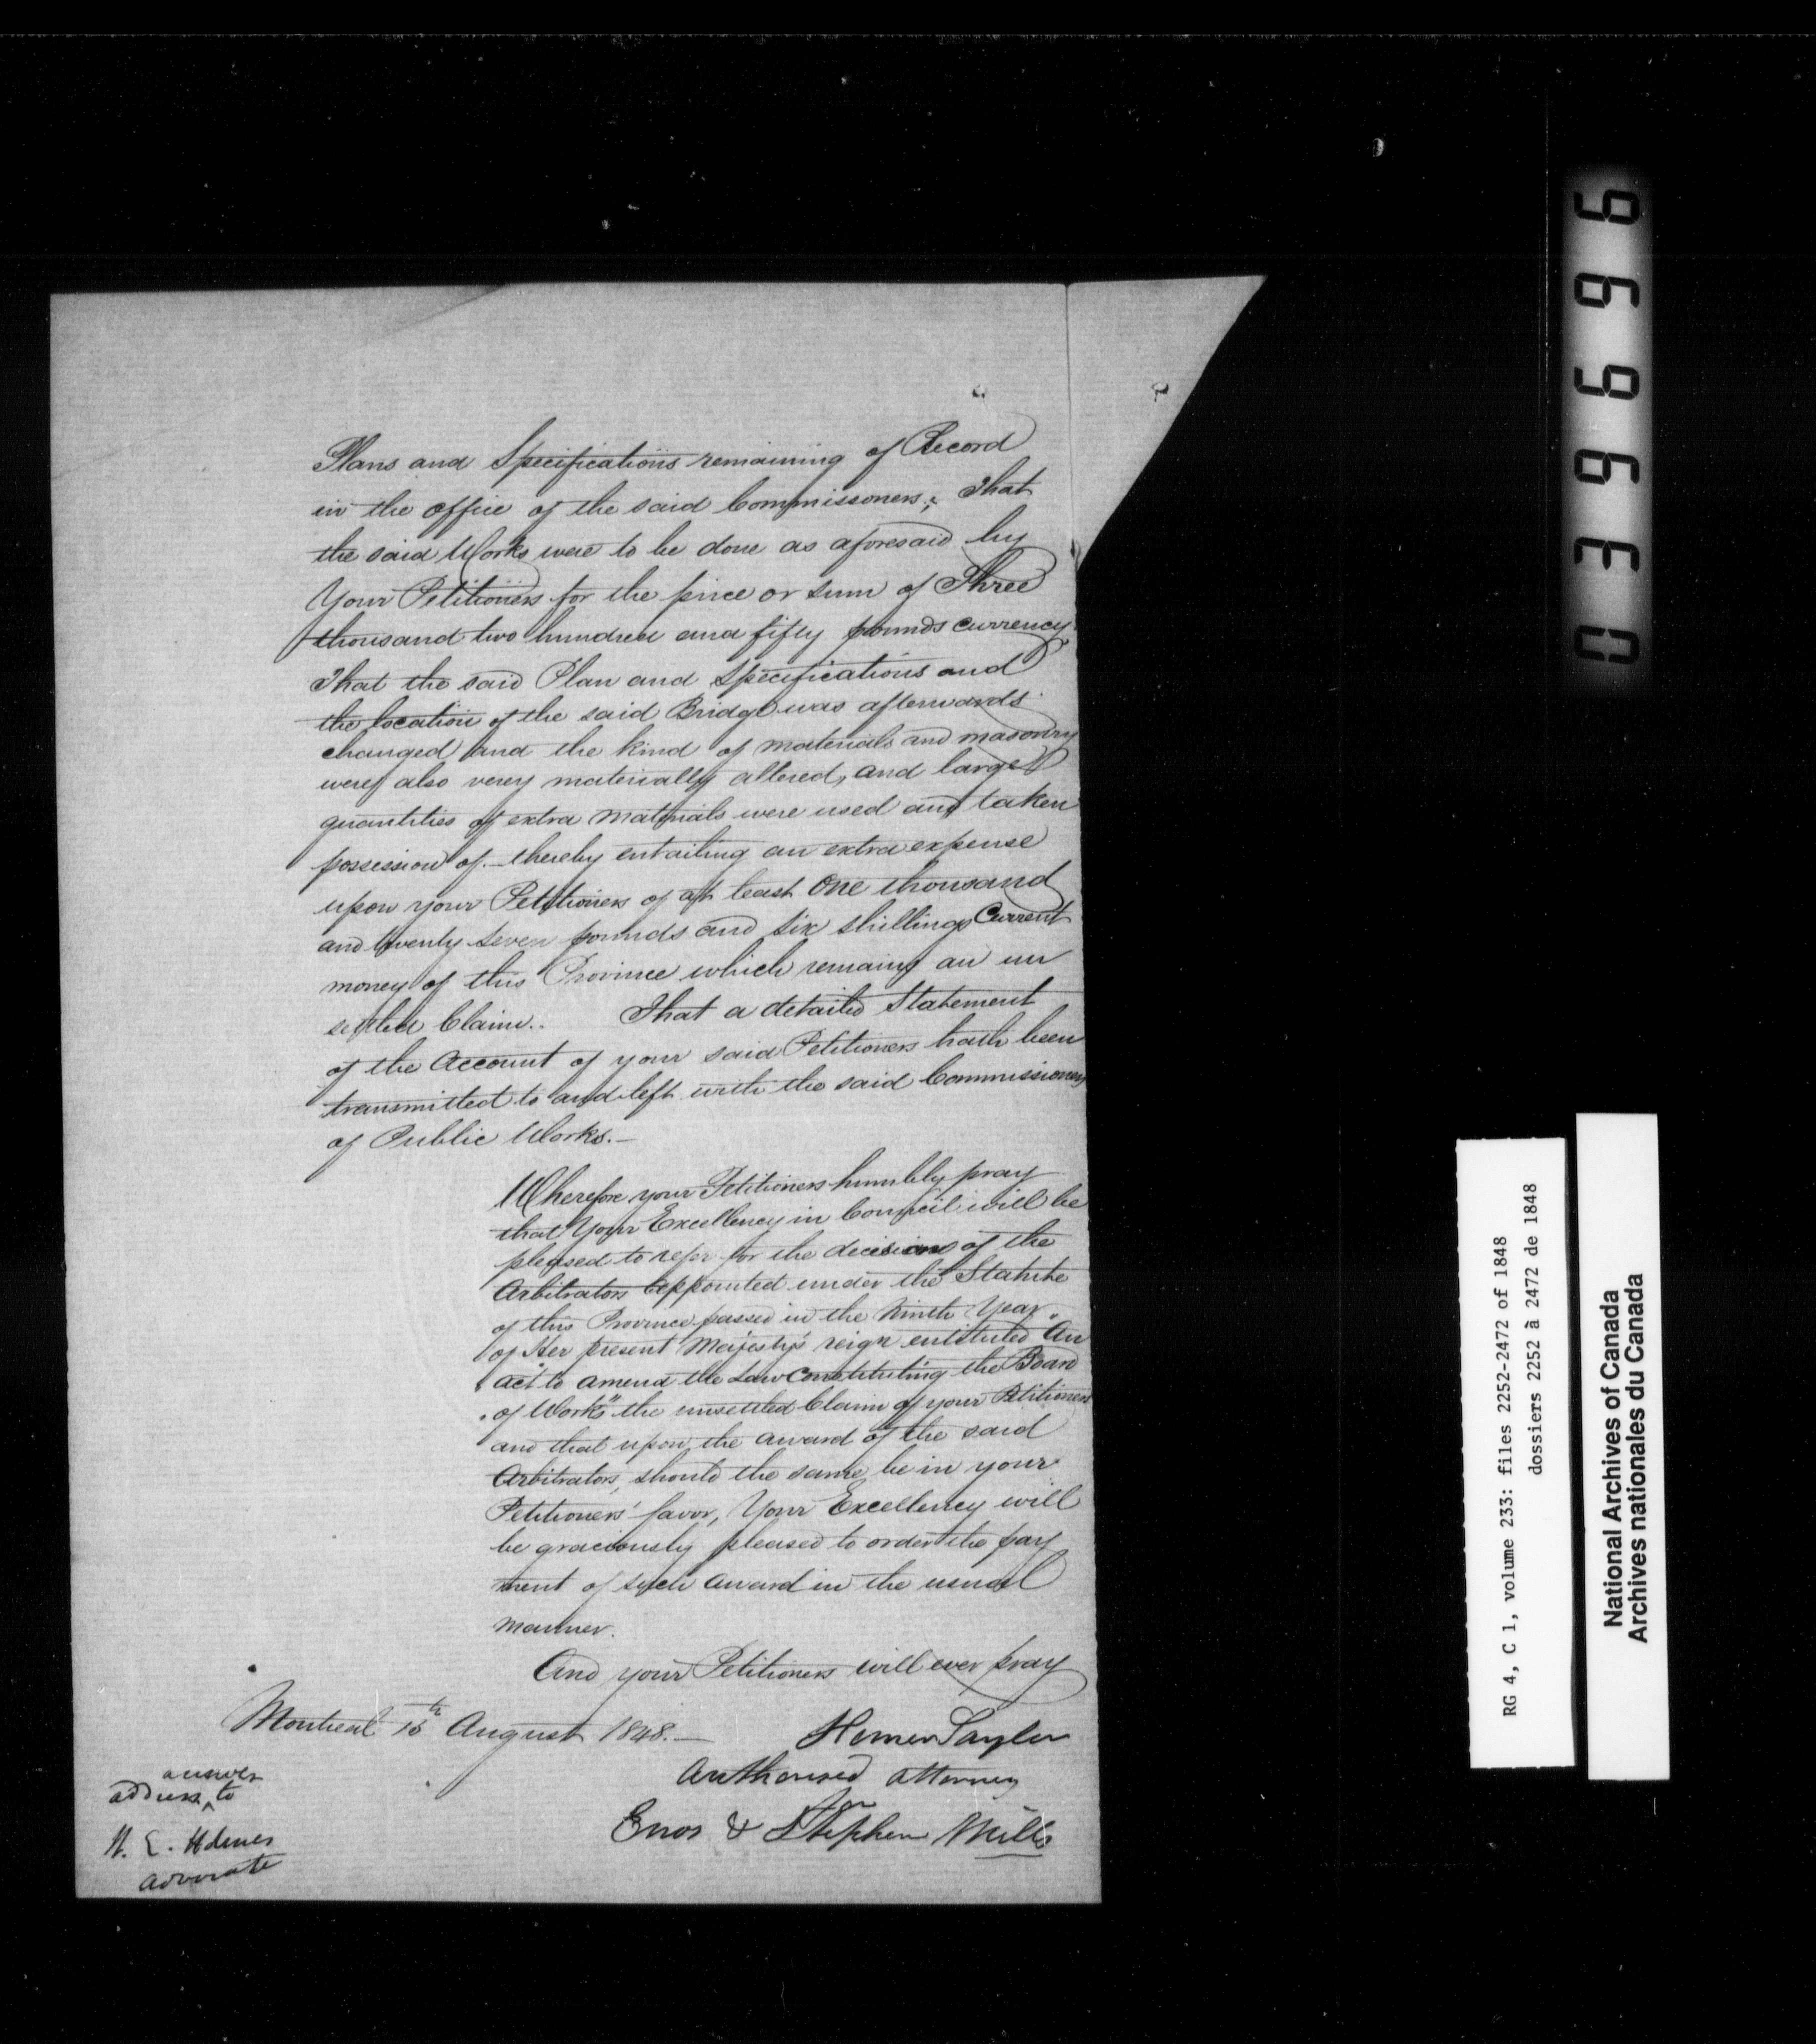 Plans and Specifications remaining of Record
in the office of the said Commissioners; That
the said Works were to be done as aforesaid by
Your Petitioners for the price or sum of Three
thousand two hundred and fifty pounds currency.
That the said Plan and Specifications and
the location of the said Bridge was afterwards
changed and the kind of materials and masonry
were also very materially altered, and large
quantities of extra materials were used and taken
possession of - thereby entailing an extra expense
upon your Petitioners of at least One thousand
and twenty seven pounds and six shillings Current
money of this Province which remains an un
settled Claim.. That a detailed Statement
of the Account of your said Petitioners hath been
transmitted to and left with the said Commissioners
of Public Works.-
Wherefore your Petitioners humbly pray
that Your Excellency in Council will be
pleased to refer for the decision of the
Arbitrators appointed under the Statute
of this Province passed in the Ninth Year
of Her present Majesty's reign entituled "An
"act to amend the Law constituting the Board
"of Works" the unsettled Claim of your Petitioners
and that upon the award of the said
Arbitrators, should the same be in your
Petitioners' favor, Your Excellency will
be graciously pleased to order the pay
ment of such award in the usual
manner.
And your Petitioners will ever pray
Montreal 15th August 1848.-
Homer Taylor
Authorised attorney
for
Enos & Stephen Mills
answer
address to
Advocate
039696
RG 4, C 1, volume 233: files 2252-2472 of 1848
dossiers 2252 à 2472 de 1848
National Archives of Canada
Archives nationales du Canada